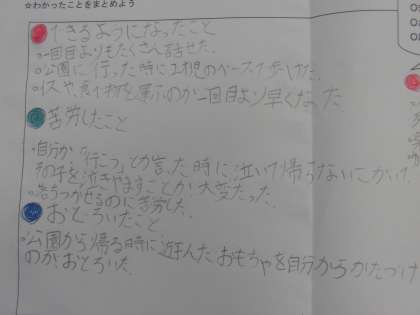 ☆わかったことをまとめよう
できるようになったこと
・一回目よりもたくさん話せた。
・公園に行った時に工児のペースで歩けた。
・イスや、食べ物を運ぶのが一回目より早くなった
苦労したこと
・自分が「行こう」とか言った時に泣いて帰らない
その子を泣きやますことが大変だった。
・落ちつかせるのに苦労した。
おどろいたこと
・公園から帰る時に遊んだおもちゃを自分からかたつけ
のが、おどろいた。